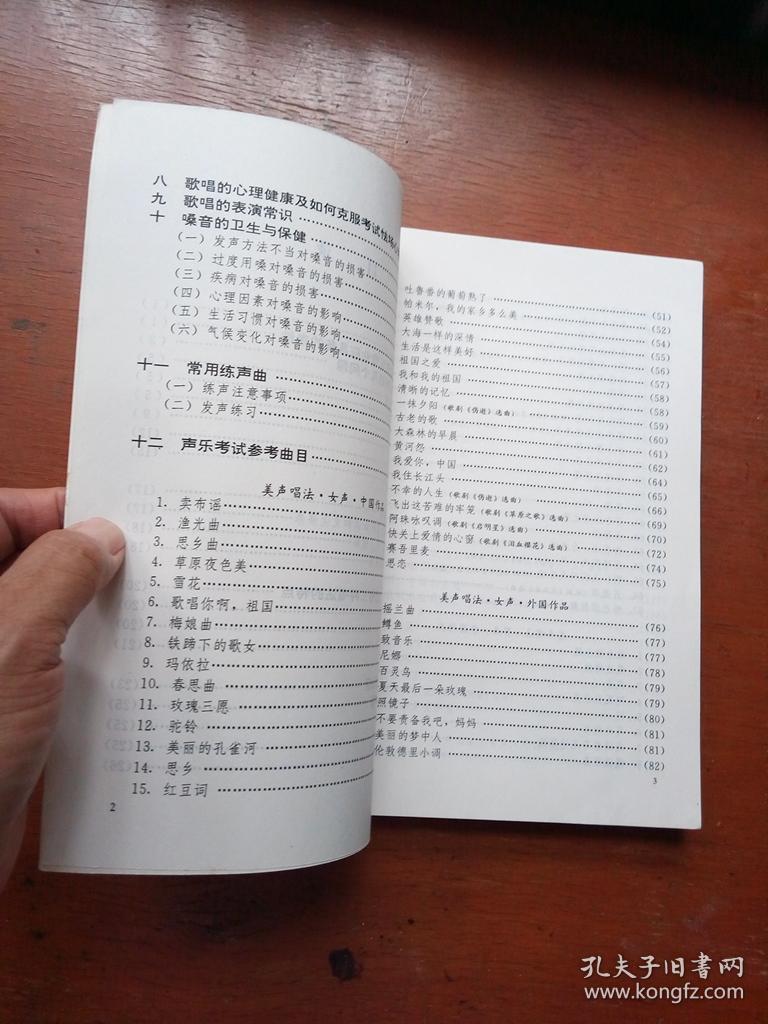 八 歌唱的心理健康及如何克服考试怯场
九 歌唱的表演常识
十 嗓音的卫生与保健
(一) 发声方法不当对嗓音的损害
(二) 过度用嗓对嗓音的损害
(三) 疾病对嗓音的损害
(四) 心理因素对嗓音的影响
(五) 生活习惯对嗓音的影响
(六) 气候变化对嗓音的影响
十一 常用练声曲
(一) 练声注意事项
(二) 发声练习
十二 声乐考试参考曲目
美声唱法·女声·中国作品
1. 卖布谣
2. 渔光曲
3. 思乡曲
4. 草原夜色美
5. 雪花
6. 歌唱你啊,祖国
7. 梅娘曲
8. 铁蹄下的歌女
9. 玛依拉
10. 春思曲
11. 玫瑰三愿
12. 驼铃
13. 美丽的孔雀河
14. 思乡
15. 红豆词
2
吐鲁番的葡萄熟了 (51)
帕米尔,我的家乡多么美 (52)
英雄赞歌 (54)
大海一样的深情 (55)
生活是这样美好 (56)
祖国之爱 (57)
我和我的祖国 (58)
清晰的记忆 (58)
一抹夕阳(歌剧《伤逝》选曲) (59)
古老的歌 (60)
大森林的早晨 (61)
黄河怨 (62)
我爱你,中国 (64)
我住长江头 (65)
不幸的人生(歌剧《伤逝》选曲) (66)
飞出这苦难的牢笼(歌剧《草原之歌》选曲) (69)
阿珠咏叹调(歌剧《启明星》选曲) (70)
快关上爱情的心窗(歌剧《泪血樱花》选曲) (72)
赛吾里麦 (74)
思恋 (75)
美声唱法·女声·外国作品
摇兰曲 (76)
鳟鱼 (77)
致音乐 (77)
尼娜 (78)
百灵鸟 (79)
夏天最后一朵玫瑰 (79)
照镜子 (80)
不要责备我吧,妈妈 (81)
美丽的梦中人 (81)
伦敦德里小调 (82)
3
孔夫子旧书网
www.kongfz.com